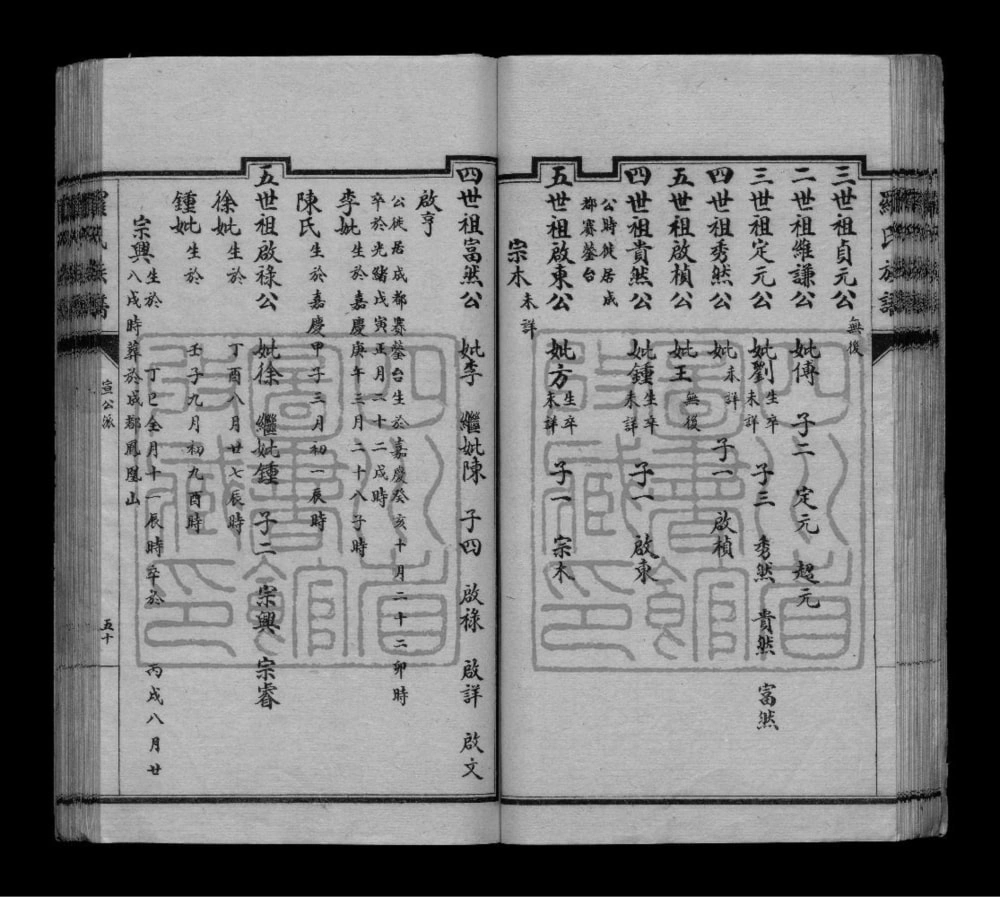 羅氏族譜
三世祖貞元公 無後
二世祖維謙公 妣傅 子二 定元 超元
三世祖定元公 妣劉 生卒未詳 子三 秀然 貴然 富然
四世祖秀然公 妣 未詳 子一 啟楨
五世祖啟楨公 妣王 無後
四世祖貴然公 妣鍾 生卒未詳 子一 啟東
公時徙居成
都賽鏊台
五世祖啟東公 妣方 生卒未詳 子一 宗木
宗木 未詳
四世祖富然公 妣李 繼妣陳 子四 啟祿 啟詳 啟文
啟亨
公徙居成都賽鏊台生於嘉慶癸亥十月二十二卯時
卒於光緒戊寅正月二十二戌時
李妣 生於嘉慶庚午三月二十八子時
陳氏 生於嘉慶甲子三月初一辰時
五世祖啟祿公 妣徐 繼妣鍾 子二 宗興 宗睿
徐妣 生於 丁酉八月廿七辰時
鍾妣 生於 壬子九月初九酉時
宗興 生於 丁巳全月十一辰時卒於 丙戌八月廿
八戌時葬於成都鳳凰山
宣公派
五十
羅氏族譜
四川省
圖書館
啟藏印